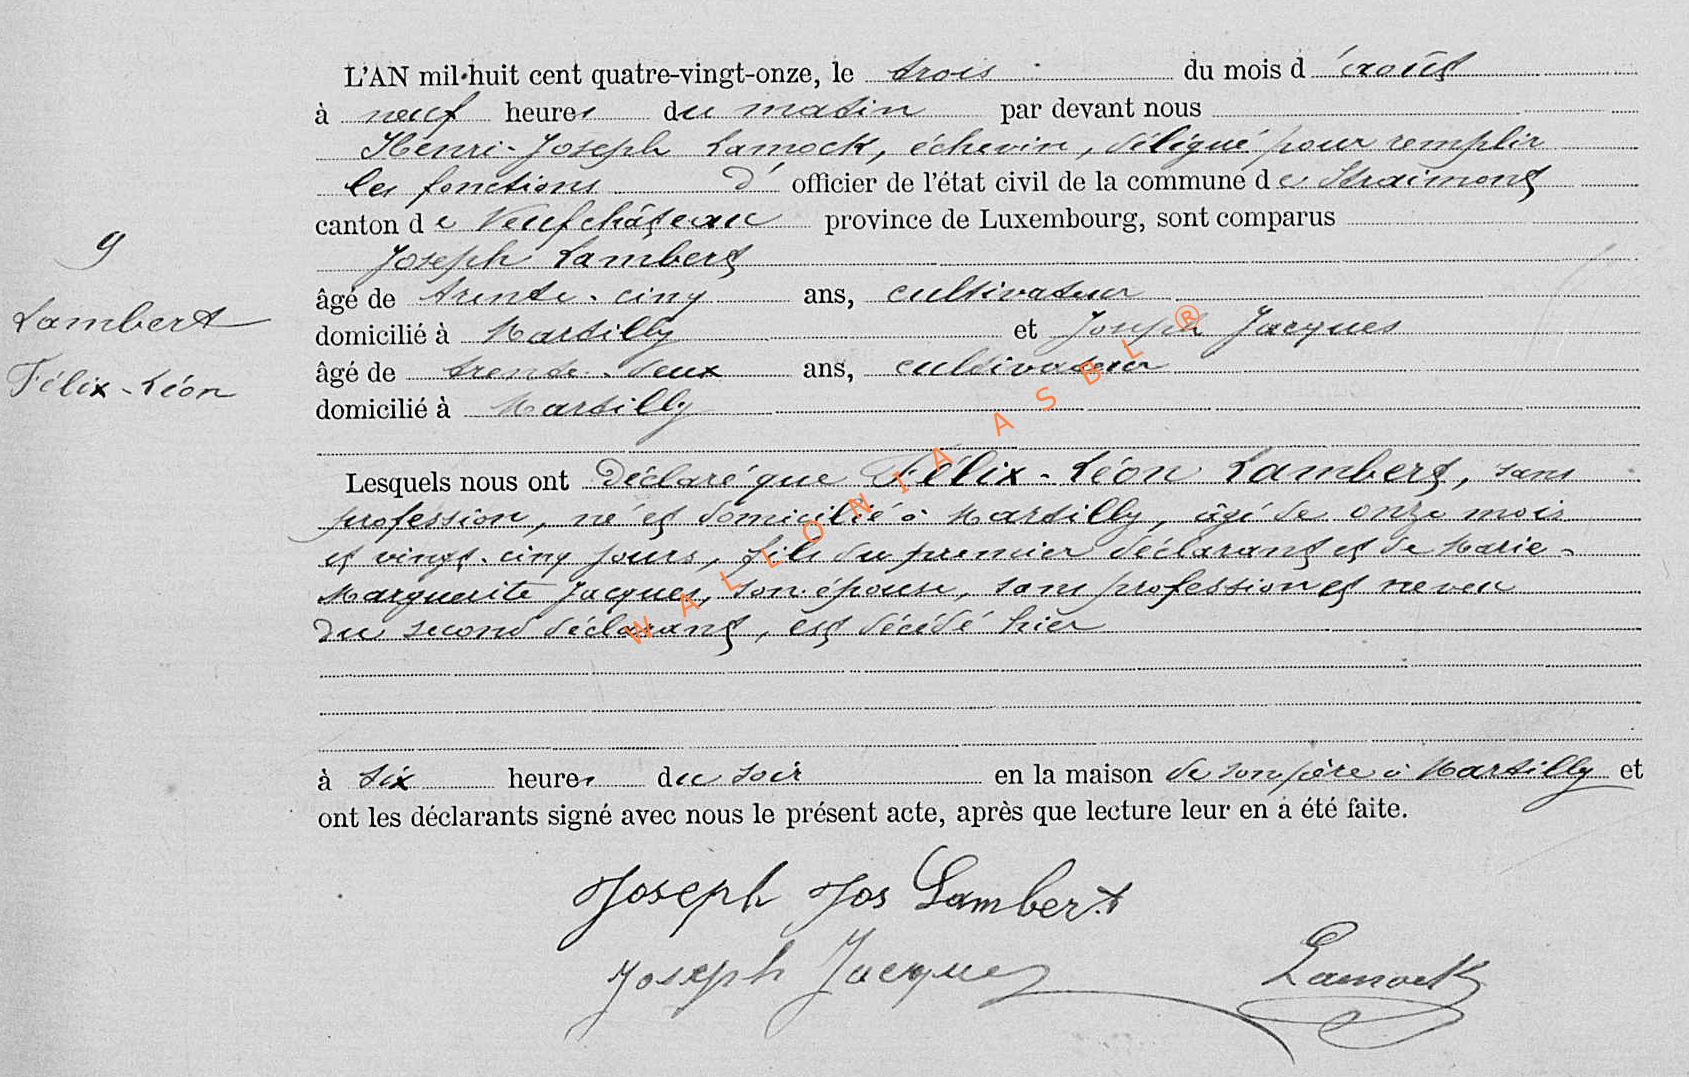 L'AN mil-huit cent quatre-vingt-onze, le trois du mois d'août
à neuf heures du matin par devant nous
Henri-Joseph Lamock, échevin, délégué pour remplir
les fonctions d' officier de l'état civil de la commune de Straimont
canton de Neufchâteau province de Luxembourg, sont comparus
9
Joseph Lambert
âgé de trente-cinq ans, cultivateur
Lambert
domicilié à Martilly et Joseph Jacques
Félix-Léon
âgé de trente-deux ans, cultivateur
domicilié à Martilly
Lesquels nous ont déclaré que Félix-Léon Lambert, sans
profession, né et domicilié à Martilly, âgé de onze mois
et vingt-cinq jours, fils du premier déclarant et de Marie-
Marguerite Jacques, son épouse, sans profession et neveu
du second déclarant, est décédé hier
à six heures du soir en la maison de son père à Martilly et
ont les déclarants signé avec nous le présent acte, après que lecture leur en a été faite.
Joseph Jos Lambert
Joseph Jacques Lamock
WALLONIA ASBL ®